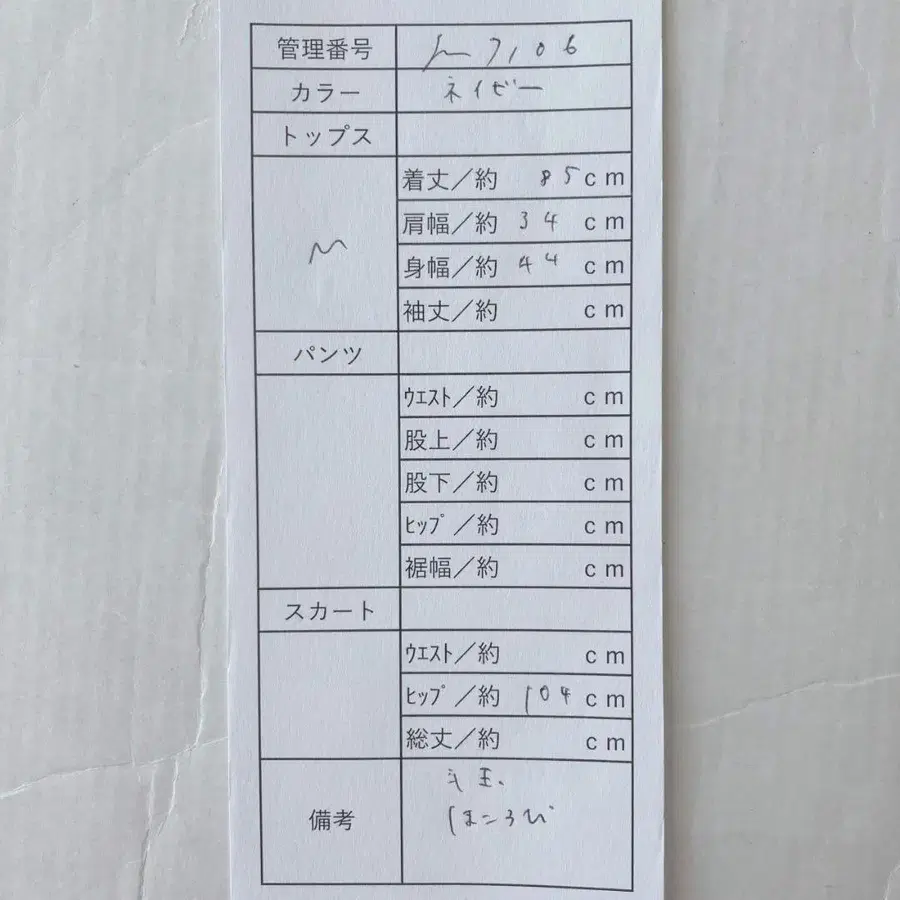 管理番号 m7106
カラー ネイビー
トップス
M
着丈／約 85cm
肩幅／約 34 cm
身幅／約 44 cm
袖丈／約 cm
パンツ
ウエスト／約 cm
股上／約 cm
股下／約 cm
ヒップ／約 cm
裾幅／約 cm
スカート
ウエスト／約 cm
ヒップ／約 104 cm
総丈／約 cm
備考
毛玉、
ほころび